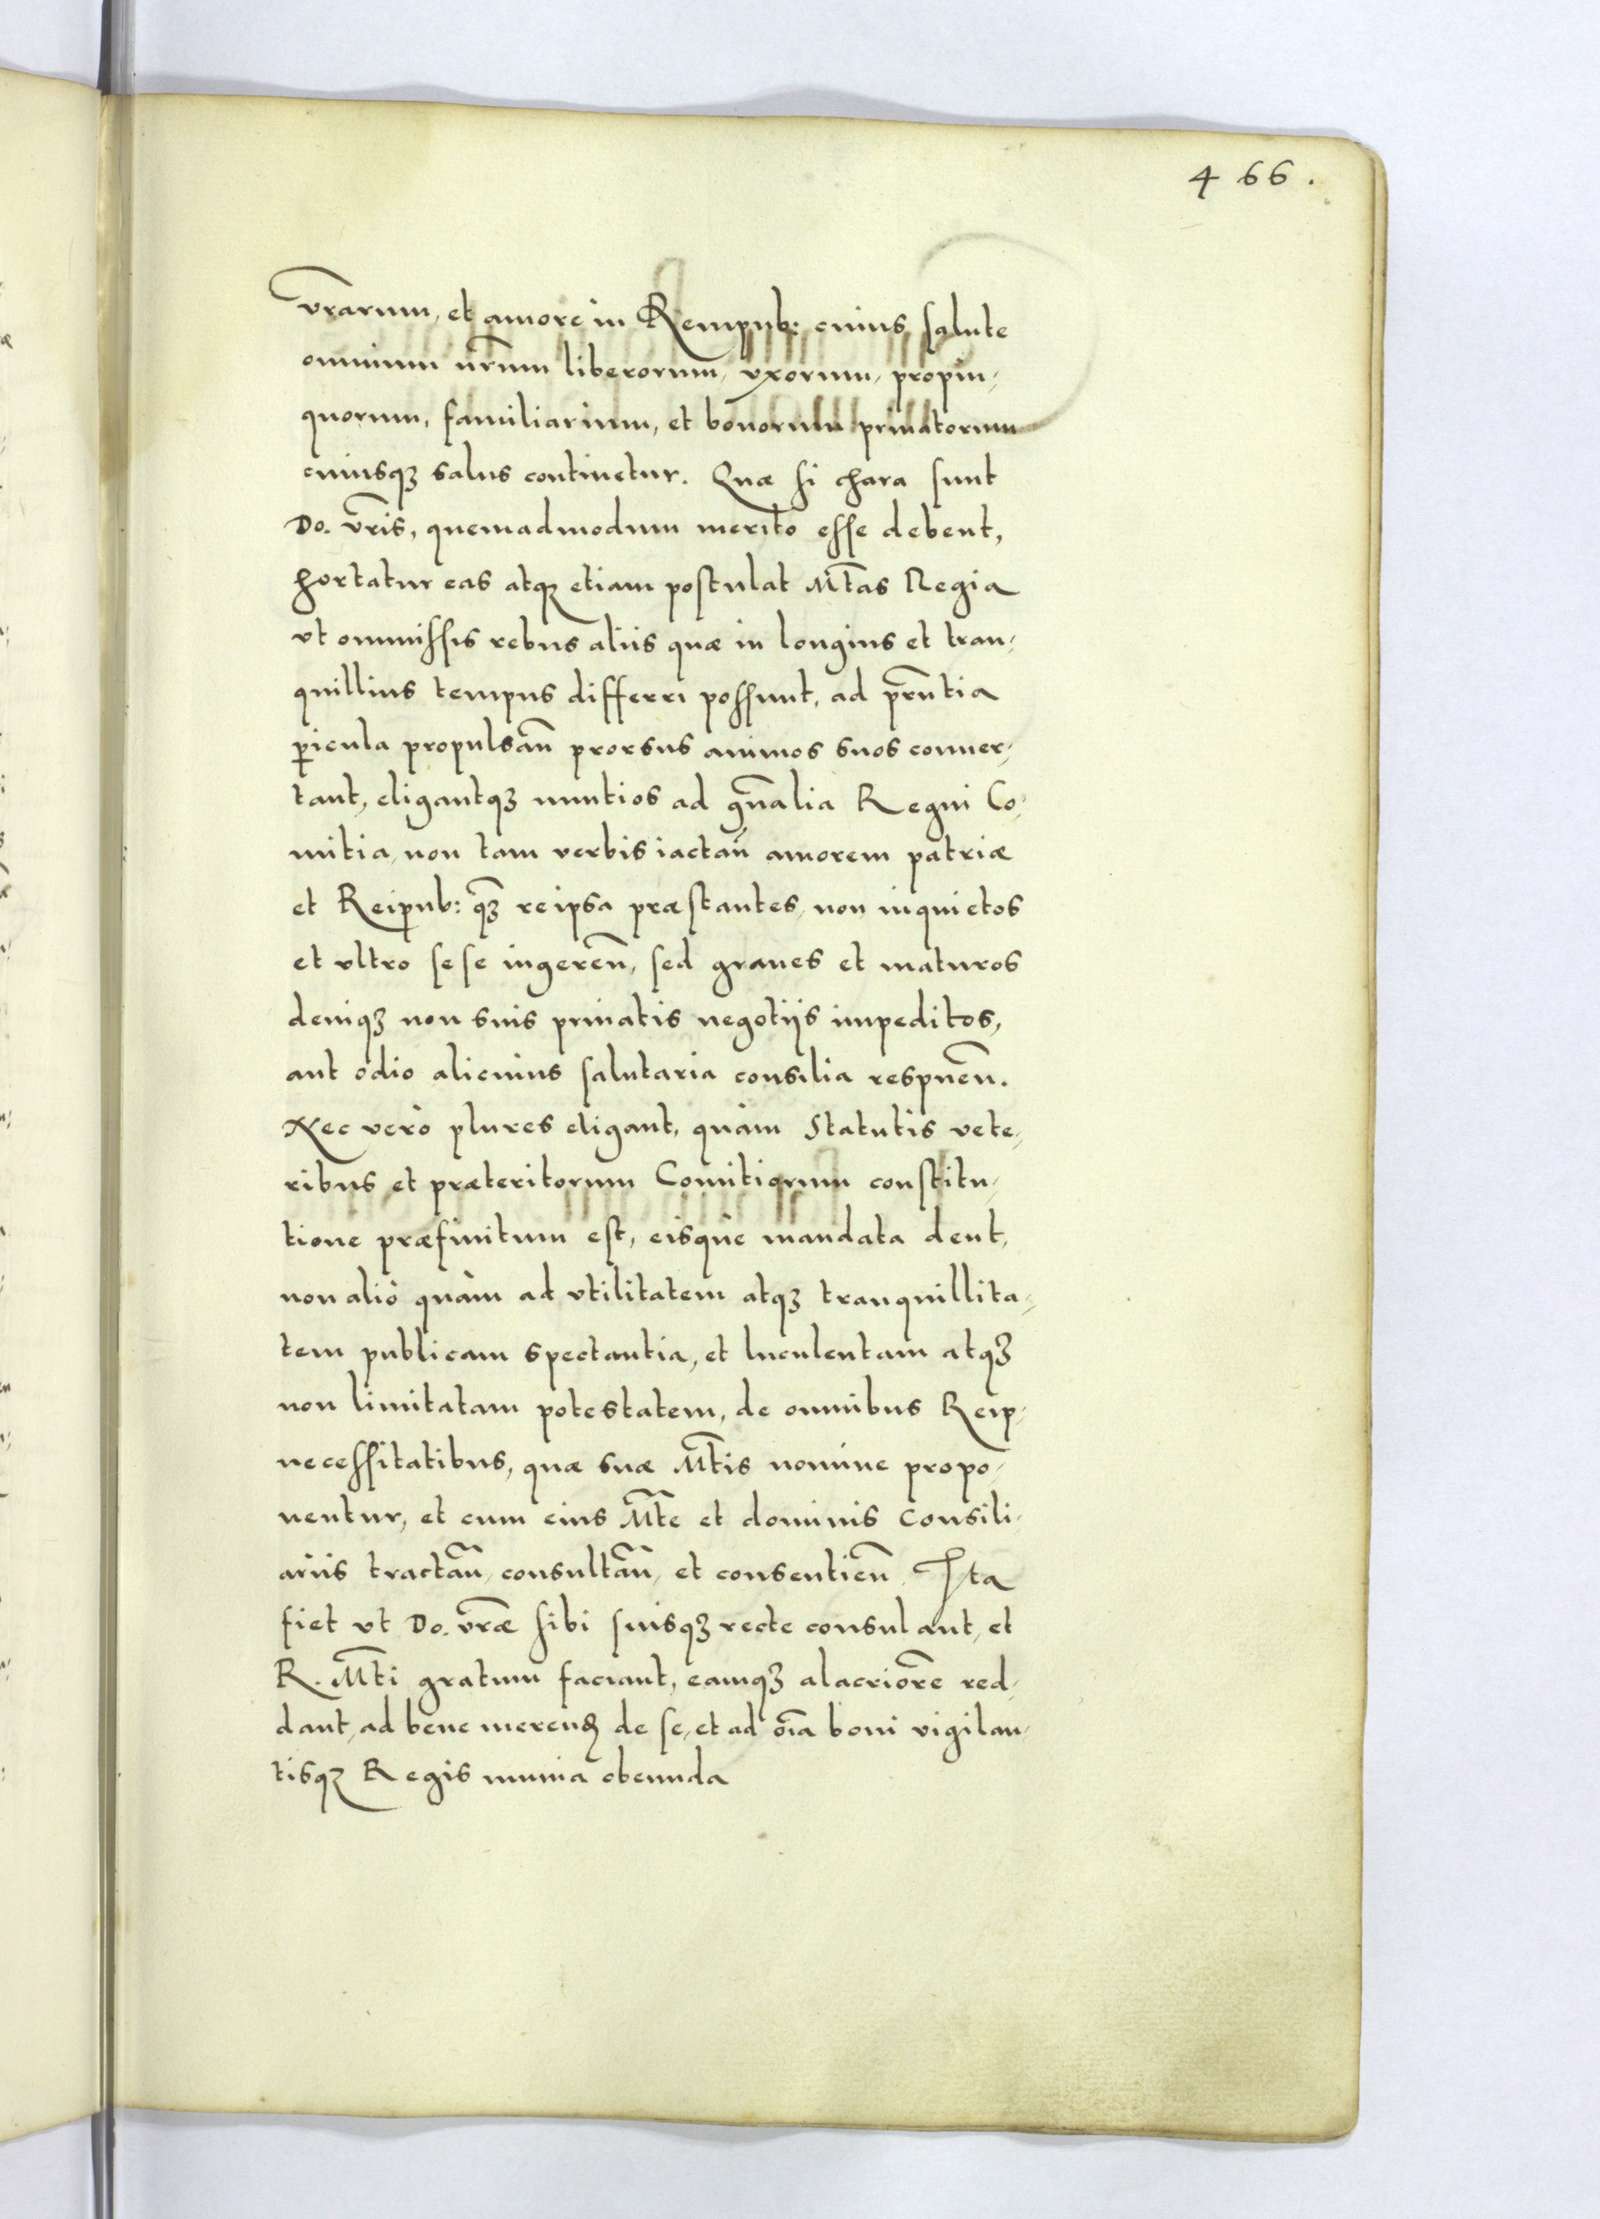 466.
vr̃arum, et amore in Rempub: cuius salute
omnium nr̃um liberorum, vxorum, propin,
quorum, familiarium, et bonorum priuatorum
cuiusqꝫ salus continetur. Quæ si chara sunt
Do. vr̃is, quemadmodum merito esse debent,
hortatur eas atqꝫ etiam postulat Mt̃as Regia
vt ommissis rebus aliis quæ in longius et tran,
quillius tempus differri possunt, ad prñtia
ꝑicula propulsañ prorsus animos suos conuer,
tant, eligantqꝫ nuntios ad gñalia Regni Co,
mitia, non tam verbis iactañ amorem patriæ
et Reipub: qꝫ reipsa præstantes, non inquietos
et vltro sese ingereñ, sed graues et maturos
deniqꝫ non suis priuatis negotijs impeditos,
aut odio alicuius salutaria consilia respueñ.
Nec verò plures eligant, quàm Statutis vete,
ribus et præteritorum Comitiorum constitu,
tione præfinitum est, eisque mandata dent,
non aliò quàm ad vtilitatem atqꝫ tranquillita,
tem publicam spectantia, et luculentam atqꝫ
non limitatam potestatem, de omnibus Reip,
necessitatibus, quæ suæ Mt̃is nomine propo,
nentur, et cum eius Mt̃e et dominis Consili,
ariis tractañ, consultañ, et consentieñ. Ita
fiet vt Do. vr̃æ sibi suisqꝫ recte consulant, et
R. Mt̃i gratum faciant, eamqꝫ alacriorẽ red,
dant, ad bene merenꝺ de se, et ad oĩa boni vigilan,
tisqꝫ Regis munia obeunda